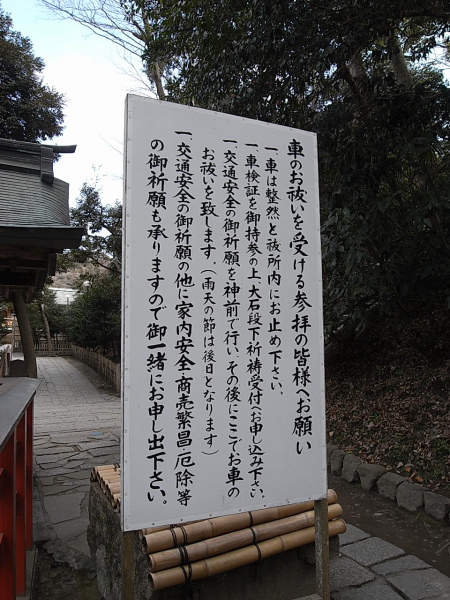 車のお祓いを受ける参拝の皆様へお願い
一、車は整然と祓所内にお止め下さい。
一、車検証を御持参の上、大石段下祈祷受付へお申し込み下さい。
一、交通安全の御祈願を神前で行い、その後にここでお車の
お祓いを致します。(雨天の節は後日となります)
一、交通安全の御祈願の他に家内安全・商売繁昌・厄除等
の御祈願も承りますので御一緒にお申し出下さい。